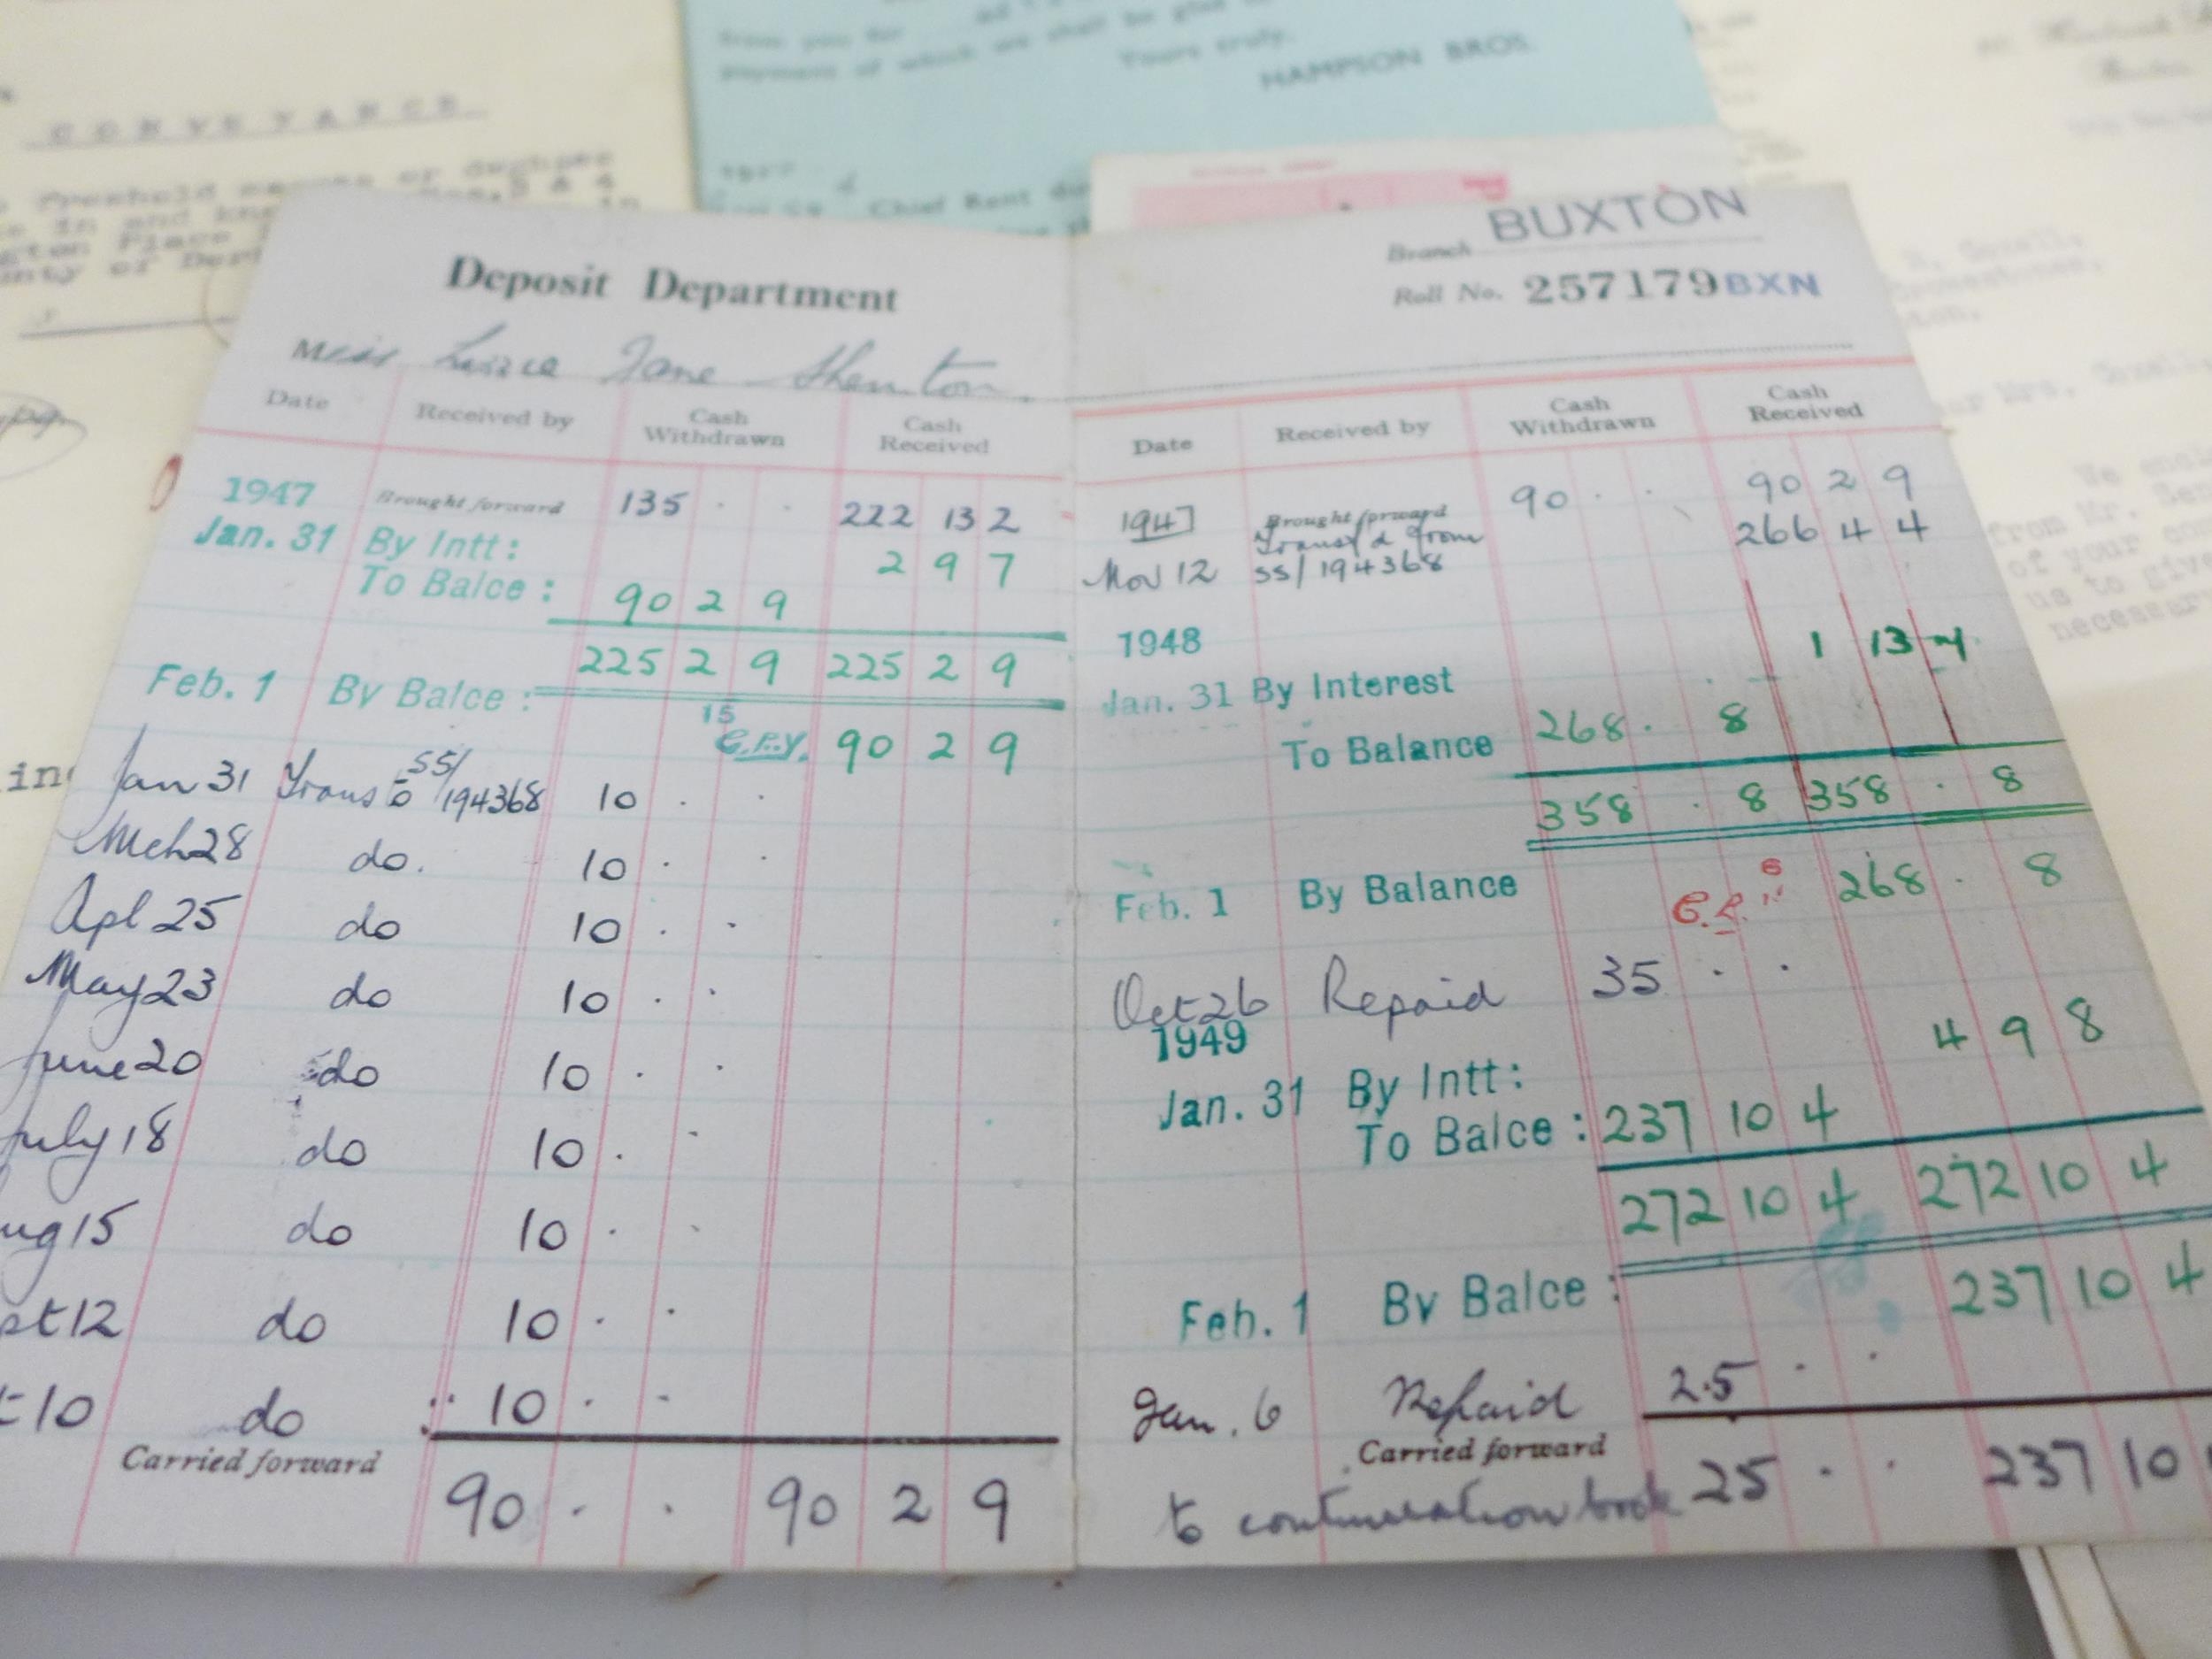 CONVEYANCE
Yours truly,
HAMPSON BROS.
Chief Rent
Deposit Department
Miss Lizzie Jane Shenton
Date Received by Cash Withdrawn Cash Received
1947 Brought forward 135 . . 222 13 2
Jan. 31 By Intt: 2 9 7
To Balce: 90 2 9
225 2 9 225 2 9
Feb. 1 By Balce: 15 C.P.Y. 90 2 9
Jan 31 Trans to SS/194368 10 . .
Mch 28 do. 10 . .
Apl 25 do 10 . .
May 23 do 10 . .
June 20 do 10 . .
July 18 do 10 . .
ug 15 do 10 . .
pt 12 do 10 . .
t 10 do 10 . .
Carried forward
90 . . 90 2 9
Branch BUXTON
Roll No. 257179 BXN
Date Received by Cash Withdrawn Cash Received
1947 Brought forward 90 . . 90 2 9
Nov 12 Transf'd from SS/194368 266 4 4
1948
Jan. 31 By Interest 1 13 7
To Balance 268 . 8
358 . 8 358 . 8
Feb. 1 By Balance 268 . 8
Oct 26 Repaid 35 . .
1949
Jan. 31 By Intt: 4 9 8
To Balce: 237 10 4
272 10 4 272 10 4
Feb. 1 By Balce: 237 10 4
Jan. 6 Repaid 25 . .
Carried forward
to continuation book 25 . . 237 10